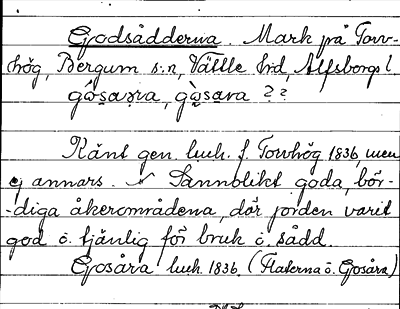 Godsädderna. Mark på Torv-
hög, Bergum s:n, Vättle hd, Älfsborgs l
Känt gen. luch. f. Torvhög 1836, men
ej annars. Sannolikt goda, bör-
-diga åkerområdena, där jorden varit
god o. tjänlig för bruk o. sådd.
Gosåra luch. 1836. (Flaterna o. Gosåra)